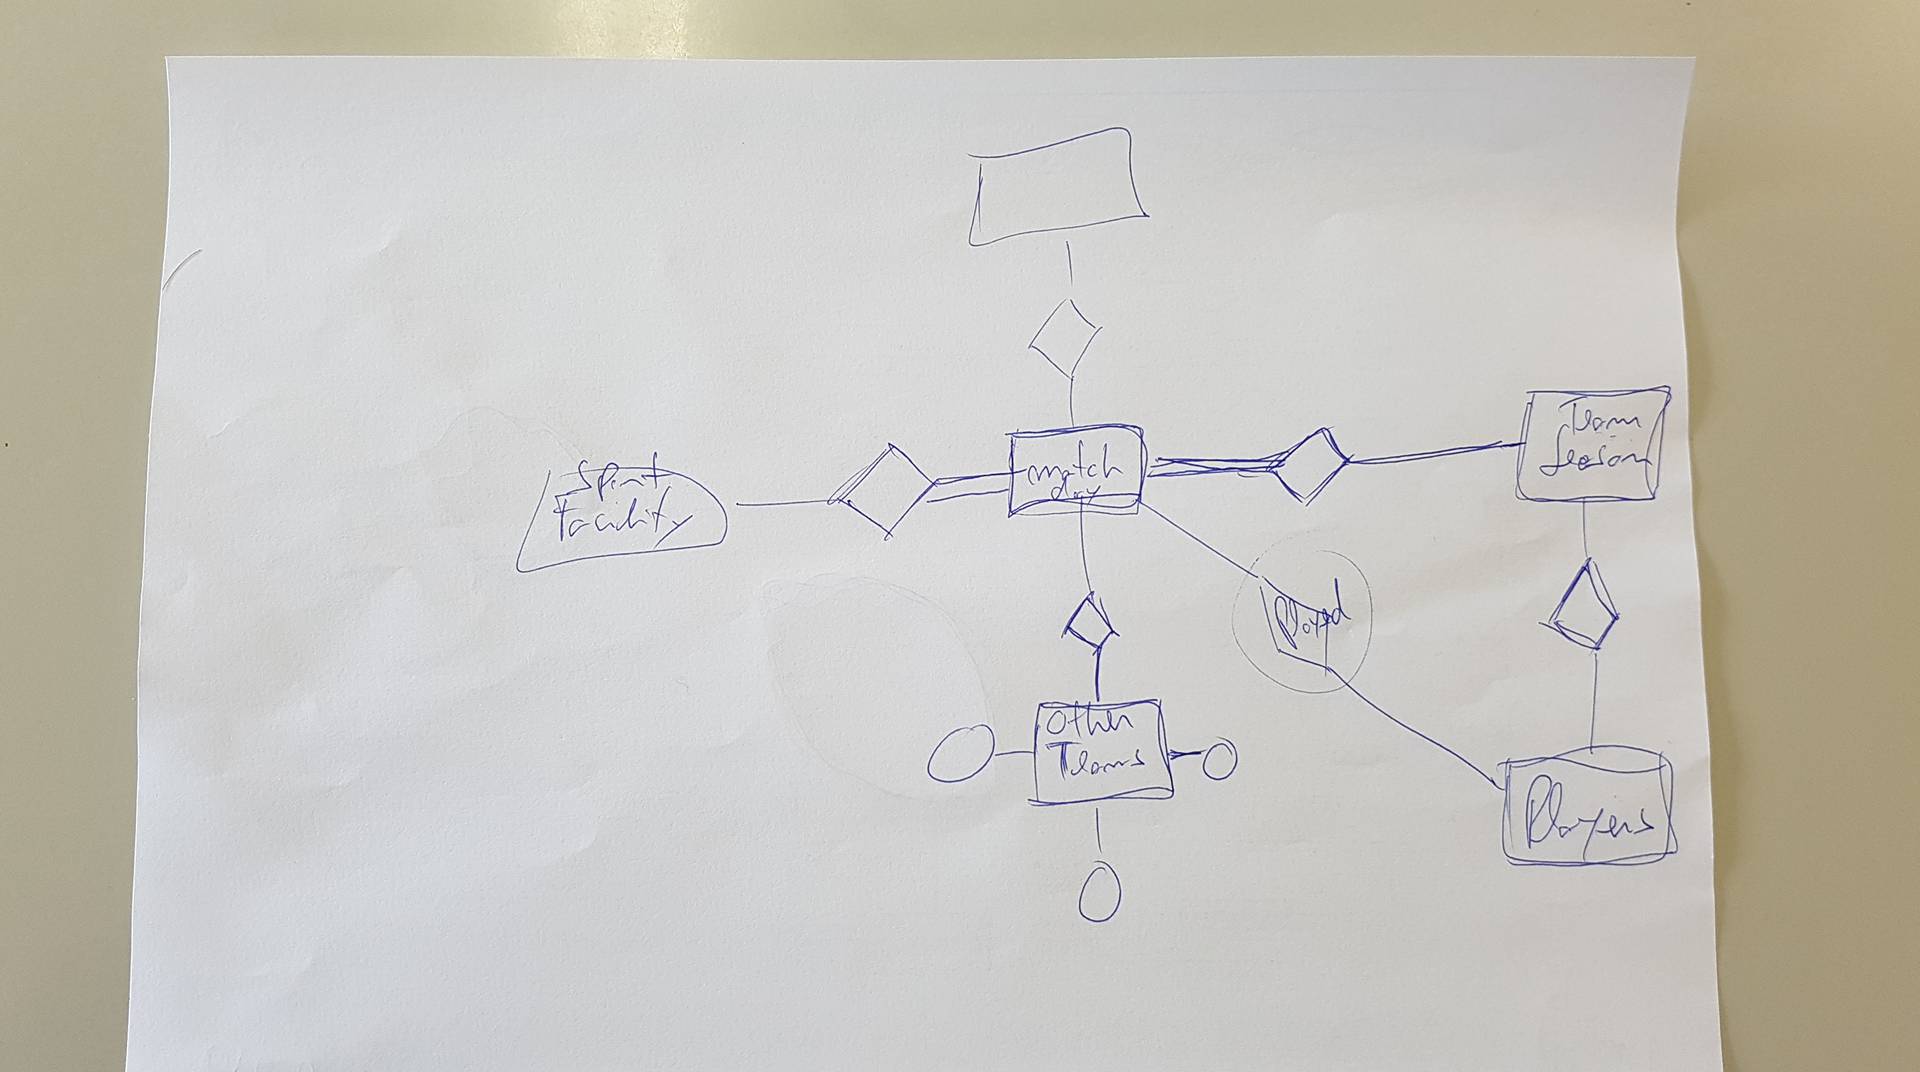 Sport
Facility
match
day
Team
Season
Played
Other
Teams
Players